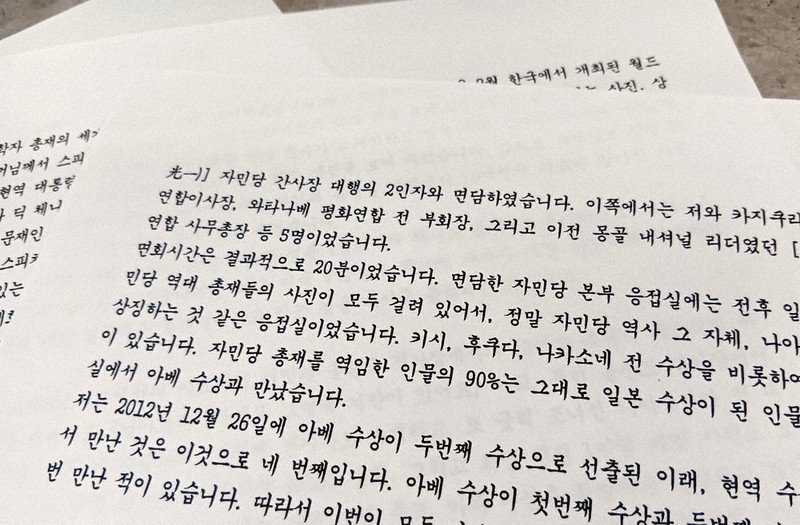 월 한국에서 개최된 월드
사진. 상
학자 총재의
께서 스피
현역 대통령
딕 체니
문재인
있는
光一)] 자민당 간사장 대행의 2인자와 면담하였습니다. 이쪽에서는 저와 카지쿠리
연합이사장, 와타나베 평화연합 전 부회장, 그리고 이전 몽골 내셔널 리더였던 [
연합 사무총장 등 5명이었습니다.
면회시간은 결과적으로 20분이었습니다. 면담한 자민당 본부 응접실에는 전후 일
민당 역대 총재들의 사진이 모두 걸려 있어서, 정말 자민당 역사 그 자체, 나아
상징하는 것 같은 응접실이었습니다. 키시, 후쿠다, 나카소네 전 수상을 비롯하여
이 있습니다. 자민당 총재를 역임한 인물의 90%는 그대로 일본 수상이 된 인물
실에서 아베 수상과 만났습니다.
저는 2012년 12월 26일에 아베 수상이 두번째 수상으로 선출된 이래, 현역 수
서 만난 것은 이것으로 네 번째입니다. 아베 수상이 첫번째 수상과
번 만난 적이 있습니다. 따라서 이번이 모두